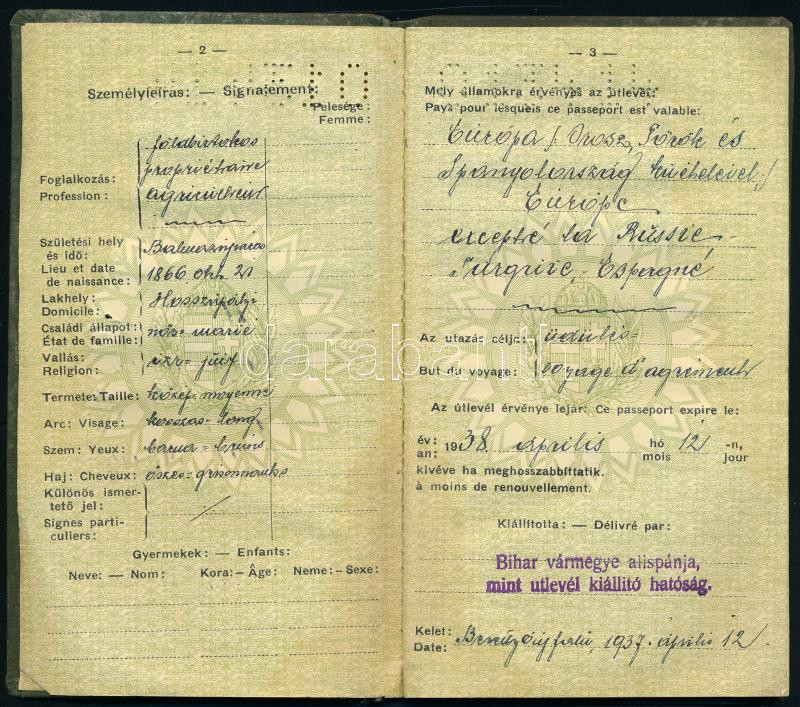 — 2 —
Személyleírás: — Signalement:
Felesége:
Femme:
földbirtokos
propriétaire
Foglalkozás:
Profession:
agriculteur
Születési hely és idő:
Lieu et date de naissance:
Balmazújváros
1866 okt. 21
Lakhely:
Domicile:
Hosszúpályi
Családi állapot:
État de famille:
nős = marié
Vallás:
Religion:
izr = juif
Termete: Taille: közép = moyenne
Arc: Visage: hosszas = long
Szem: Yeux: barna = bruns
Haj: Cheveux: őszes =
Különös ismertető jel:
Signes particuliers:
Gyermekek: — Enfants:
Neve: — Nom: Kora: – Âge: Neme: – Sexe:
— 3 —
Mely államokra érvényes az útlevél:
Pays pour lesquels ce passeport est valable:
Európa /: Orosz, Török és
Spanyolország kivételével :/
Európe
excepté la Russie
Turquie, Espagne
Az utazás célja: üdülés =
But du voyage: voyage d'agrément
Az útlevél érvénye lejár: Ce passeport expire le:
év: an: 1938 április hó mois 12 -n, jour
kivéve ha meghosszabbíttatik.
à moins de renouvellement.
Kiállította: — Délivré par:
Bihar vármegye alispánja,
mint utlevél kiállitó hatóság.
Kelet:
Date:
Berettyóújfalu, 1937. április 12.
darabanth